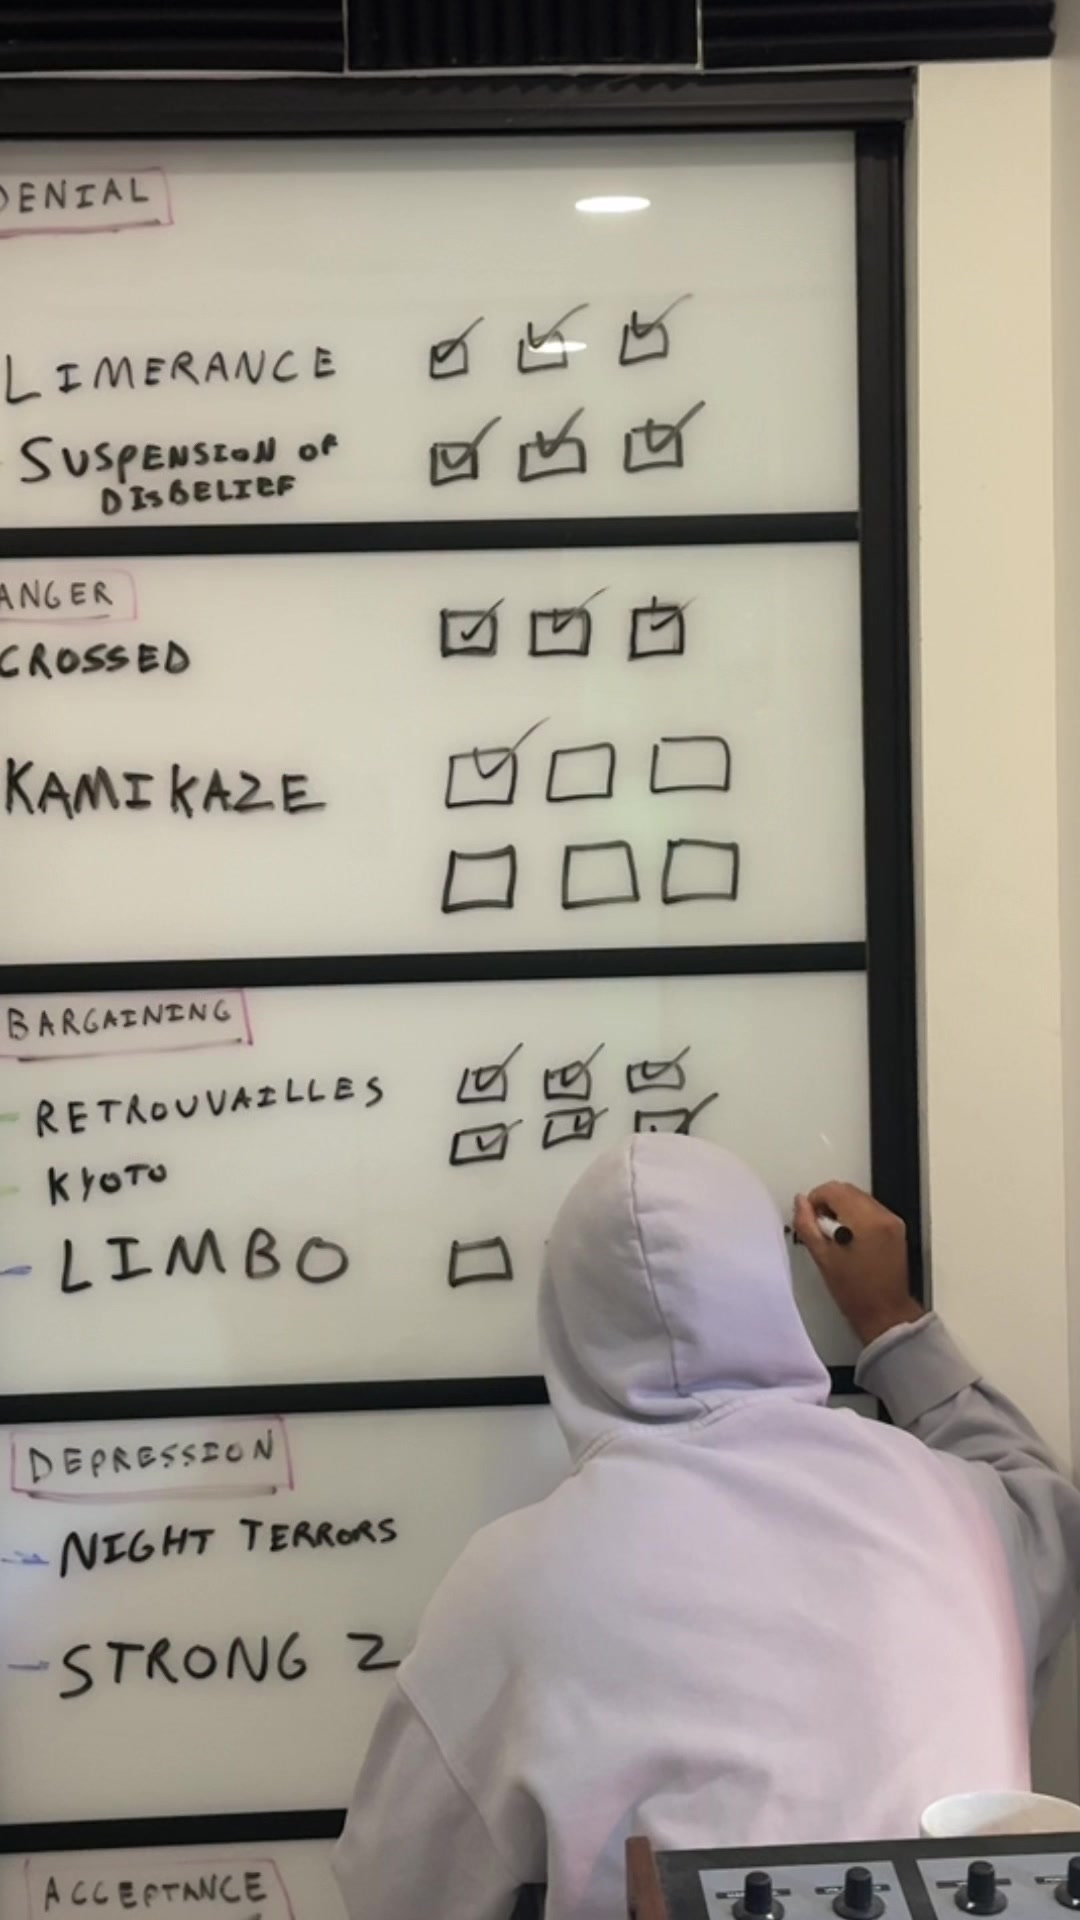 DENIAL
LIMERANCE
SUSPENSION OF
DISBELIEF
ANGER
CROSSED
KAMIKAZE
BARGAINING
RETROUVAILLES
KYOTO
- LIMBO
DEPRESSION
- NIGHT TERRORS
- STRONG 2
ACCEPTANCE